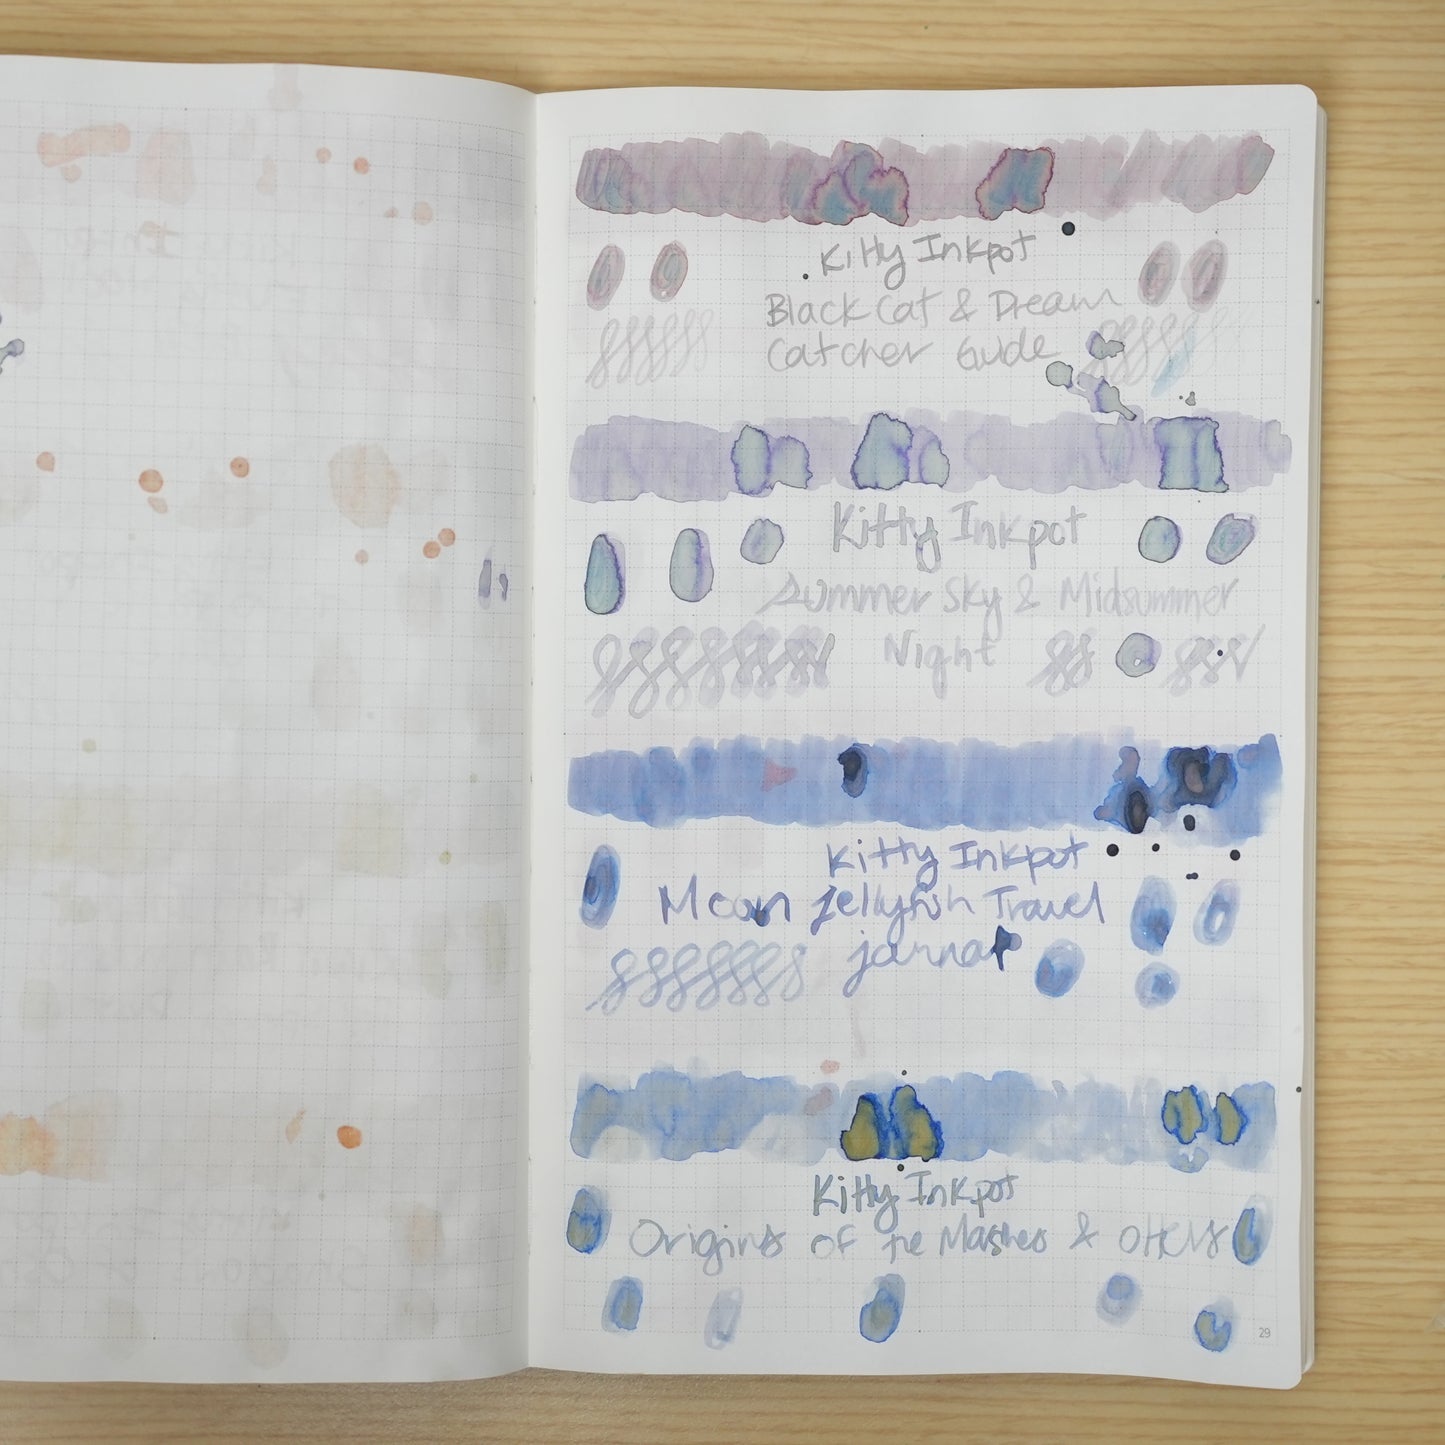 Kitty Inkpot
Black Cat & Dream
Catcher Guide
Kitty Inkpot
Summer Sky & Midsummer
Night
Kitty Inkpot
Moon Jellyfish Travel
Kitty Inkpot
Origins of the & others
29